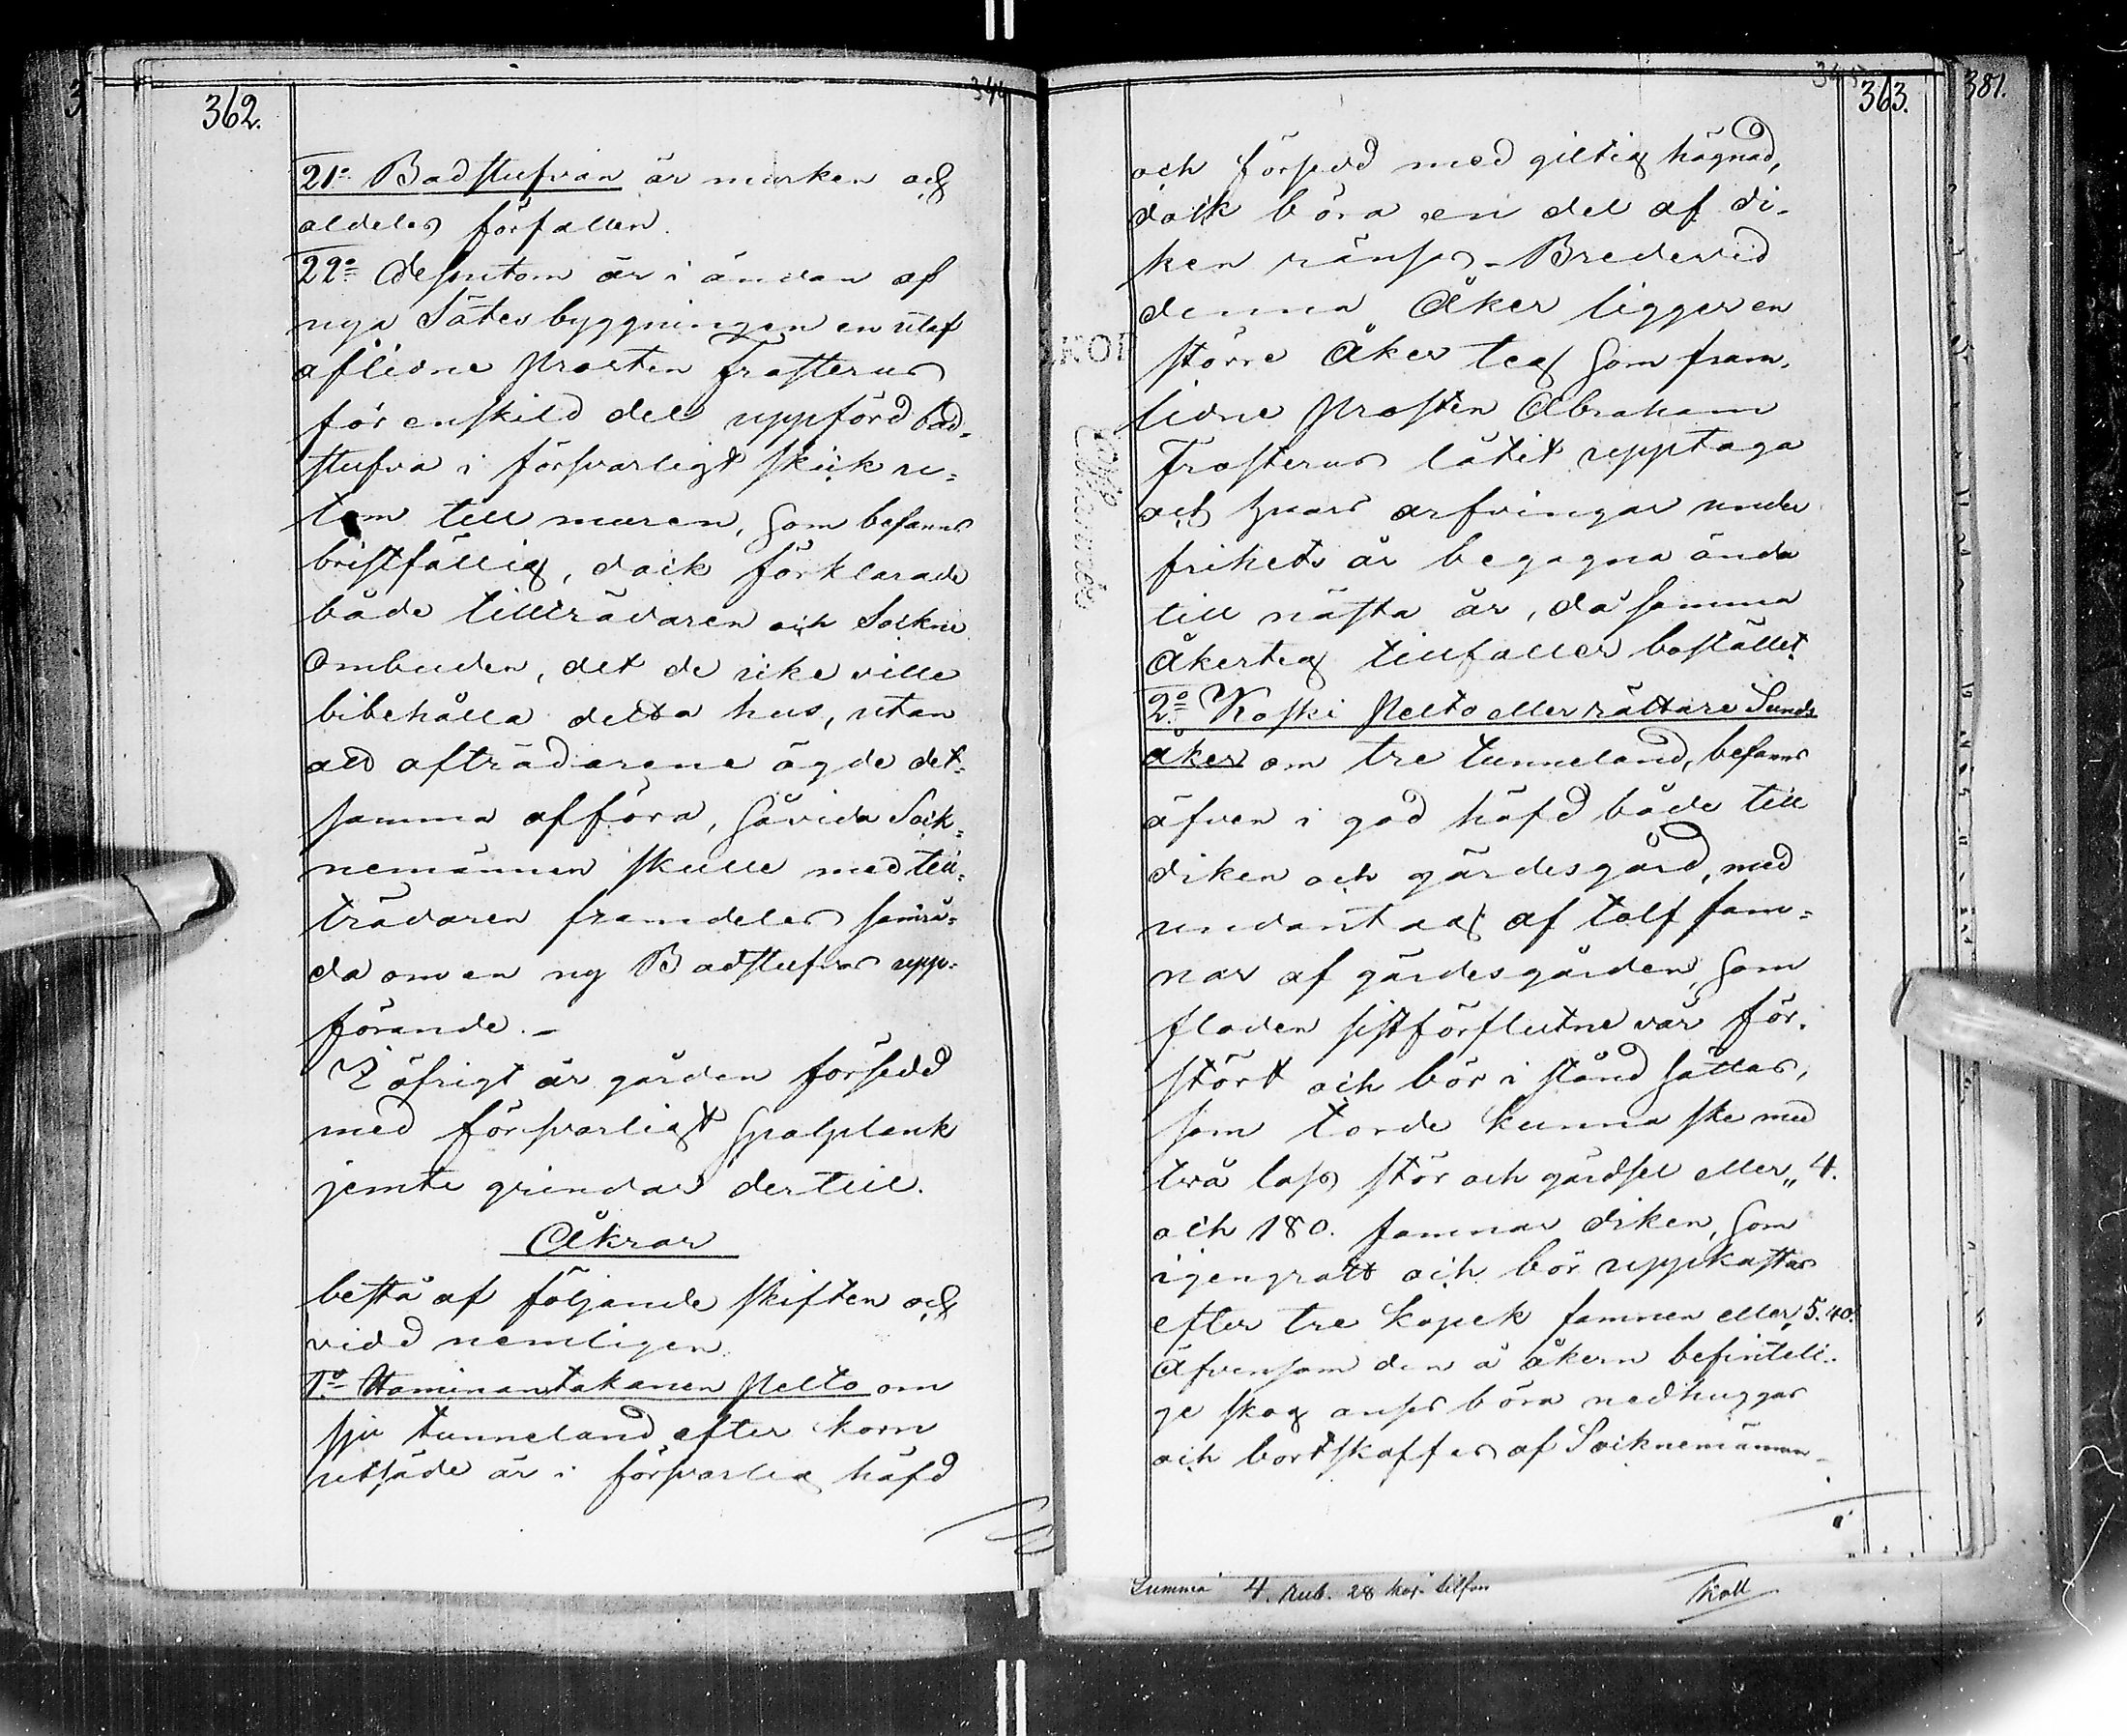 362.
21º Badstufvan är mörken och
aldeles förfallen.
22º dessutom är i ändan af
nya Sätesbyggningen en utaf
aflidne Prosten Frosterus
för enskild del uppförd bad-
stufva i försvarligt skick u-
tom till muren, som befanns
bristfällig, dock förklarade
både tillträdaren och Sockne
Ombuden, det de icke ville
bibehålla detta hus, utan
att afträdarene ägde det-
samma afföra, såvida Sock-
nemännen skulle med till-
trädaren framdeles samrå-
da om en ny Badstufvas upp-
förande. –
I öfrigt är gården försedd
med försvarligt spalplank
jemte grindar dertill.
Åkrar
bestå af följande skiften och
vidd nemligen.
1º Haminantakanen Pelto om
sju tunneland efter korn
utsäde är i försvarlig häfd
363.
381.
och försedd med giltig hägnad,
dock böra en del af di-
ken ränsas – Bredevid
denna Åker ligger en
större Åker teg som fram-
lidne Prosten Abraham
Frosterus låtit upptaga
och hvars arfvingar under
frihets år begagna ända
till nästa år, då samma
Åkerteg tillfaller bostället.
2º Koski Pelto eller rättare Sunds
åker om tre tunneland, befanns
äfven i god häfd både till
diken och gärdesgård, med
undantag af tolf fam-
nar af gärdesgården, som
floden sistförflutne vår för-
stört och bör i stånd sättas,
som torde kunna ske med
två lass stör och gärdsel eller „ 4.
och 180. famnar diken, som
igengrott och bör uppkastas
efter tre kopek famnen eller 5.40.
Äfvensom den å åkern befinteli-
ge skog anses böra nedhuggas
och bortskaffas af Socknemännen –
Summa 4. Rub. 28 kop. silfver